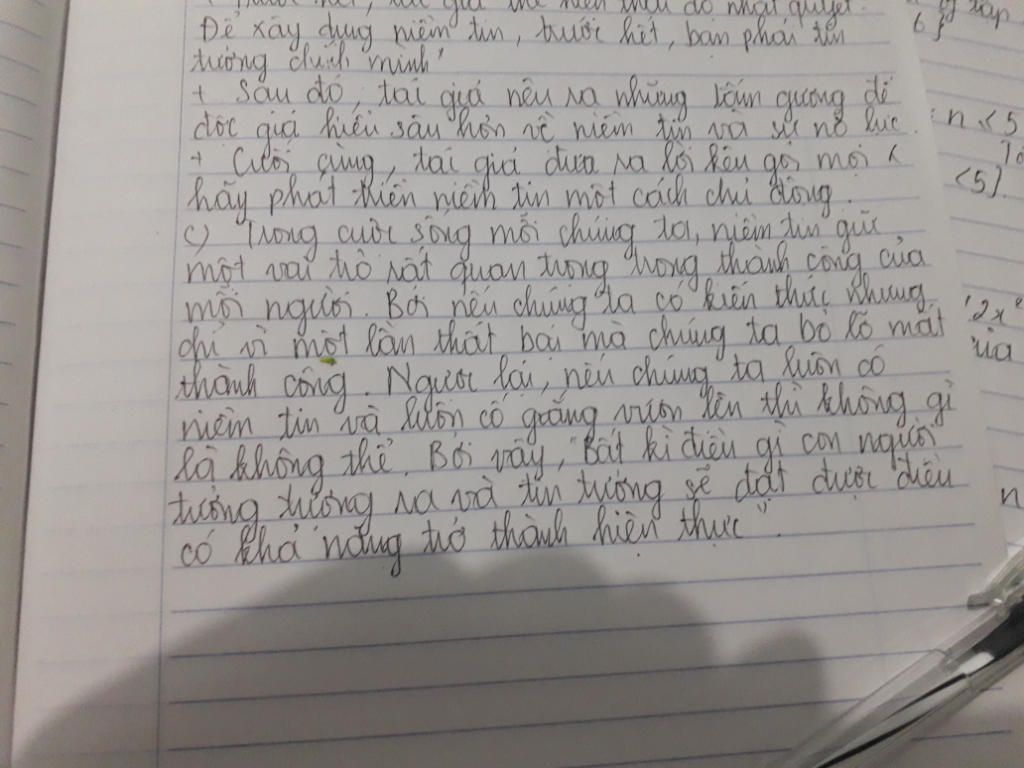 + Trước hết, tác giả thể hiện thái độ nhất quyết:
Để xây dựng niềm tin, trước hết, bạn phải tin
tưởng chính mình"
+ Sau đó, tác giả nêu ra những tấm gương để
độc giả hiểu sâu hơn về niềm tin và sự nỗ lực.
+ Cuối cùng, tác giả đưa ra lời kêu gọi mọi
hãy phát triển niềm tin một cách chủ động.
c) Trong cuộc sống mỗi chúng ta, niềm tin giữ
một vai trò rất quan trọng trong thành công của
mỗi người. Bởi nếu chúng ta có kiến thức nhưng
chỉ vì một lần thất bại mà chúng ta bỏ lỡ mất
thành công. Ngược lại, nếu chúng ta luôn có
niềm tin và luôn cố gắng vươn lên thì không gì
là không thể. Bởi vậy, "Bất kì điều gì con người
tưởng tượng ra và tin tưởng sẽ đạt được đều
có khả năng trở thành hiện thực".
6}
n < 5
<5}
2x
của
n